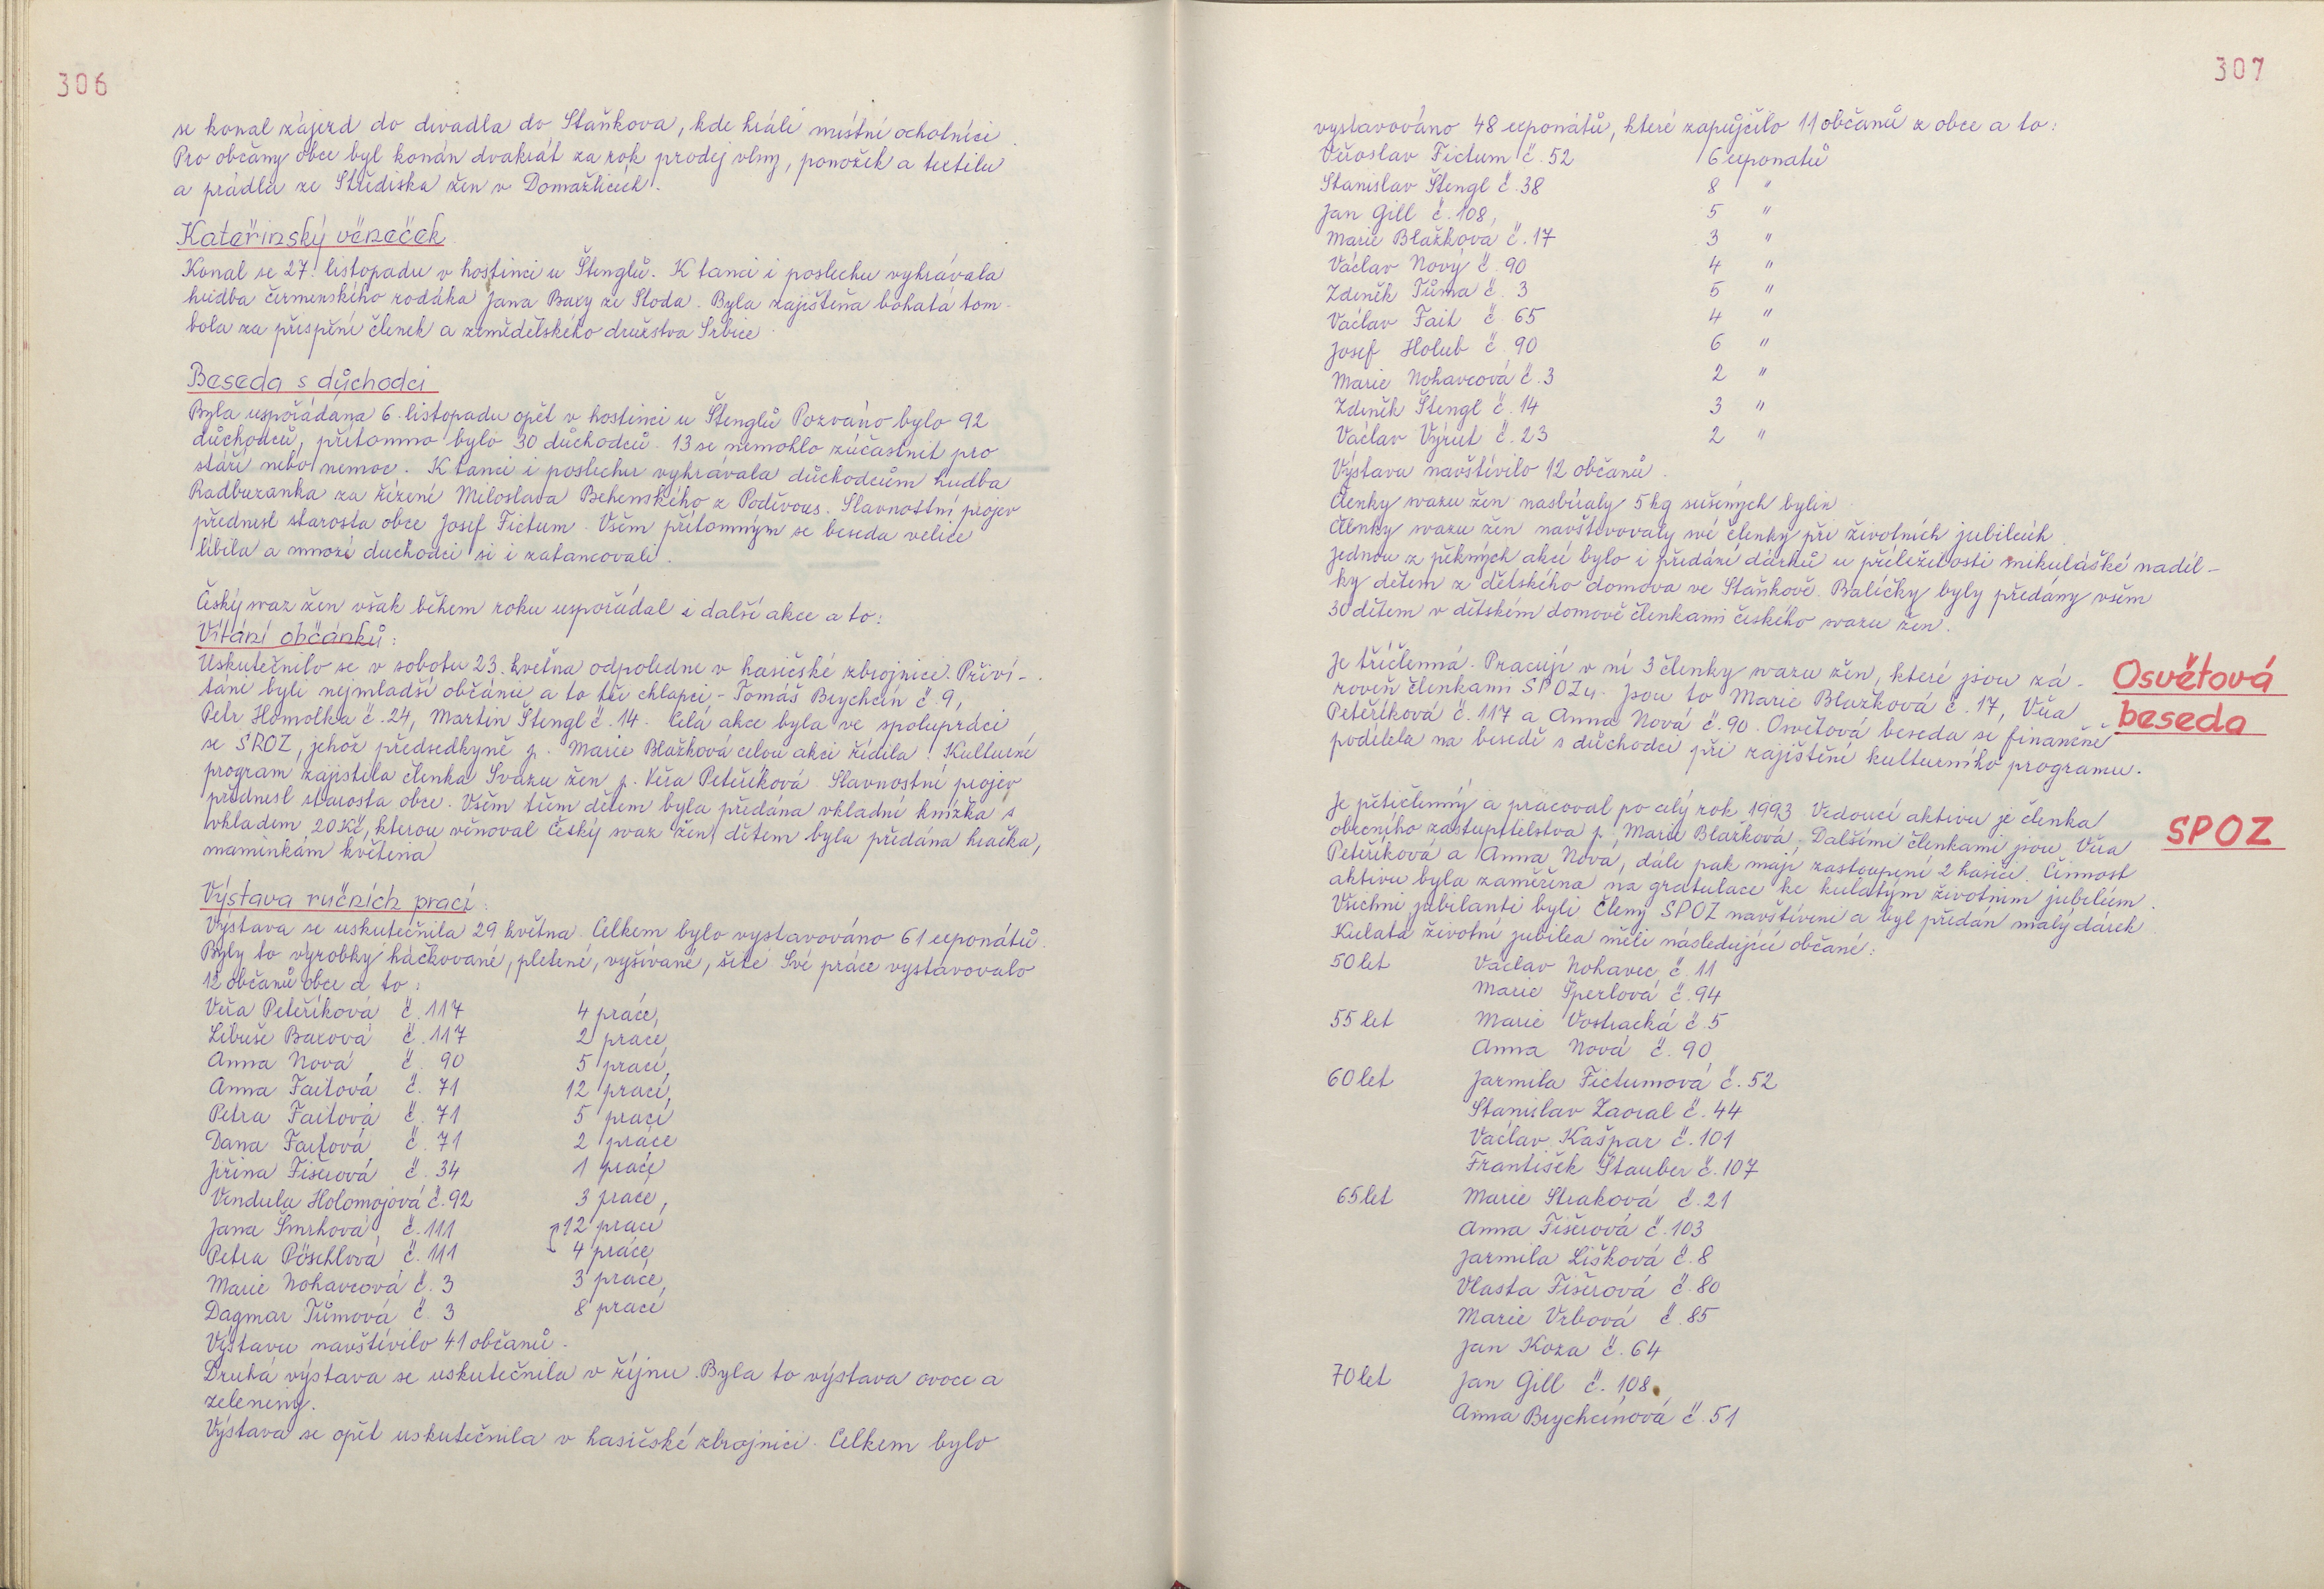 306
se konal zájezd do divadla do Staňkova, kde hráli místní ochotníci.
Pro občany obce byl konán dvakrát za rok prodej vlny, ponožek a textilu
a prádla ze Střediska žen v Domažlicích.
Kateřinský věneček
Konal se 27. listopadu v hostinci u Štenglů. K tanci i poslechu vyhrávala
hudba čermenského rodáka Jana Baxy ze Stoda. Byla zajištěna bohatá tom-
bola za přispění členek a zemědělského družstva Srbice.
Beseda s důchodci
Byla uspořádána 6. listopadu opět v hostinci u Štenglů Pozváno bylo 92
důchodců, přítomno bylo 30 důchodců. 13 se nemohlo zúčastnit pro
stáří nebo nemoc. K tanci i poslechu vyhrávala důchodcům hudba
Radbuzanka za řízení Miloslava Behenského z Poděvous. Slavnostní projev
přednesl starosta obce Josef Fictum. Všem přítomným se beseda velice
líbila a mnozí duchodci si i zatancovali.
Český svaz žen však během roku uspořádal i další akce a to:
Vítání občánků:
Uskutečnilo se v sobotu 23. května odpoledne v hasičské zbrojnici. Přiví-
táni byli nejmladší občánci a to tři chlapci - Tomáš Brychcín č. 9,
Petr Homolka č. 24, Martin Štengl č. 14. Celá akce byla ve spolupráci
se SPOZ, jehož předsedkyně p. Marie Blažková celou akci řídila. Kulturní
program zajistila členka Svazu žen p. Věra Peteříková. Slavnostní projev
přednesl starosta obce. Všem třem dětem byla předána vkladní knížka s
vkladem 20 Kč, kterou věnoval Český svaz žen, dětem byla předána hračka,
maminkám květina
Výstava ručních prací:
Výstava se uskutečnila 29 května. Celkem bylo vystavováno 61 exponátů.
Byly to výrobky háčkované, pletené, vyšívané, šité Své práce vystavovalo
12 občanů obce a to:
Věra Peteříková č. 117 4 práce,
Libuše Baxová č. 117 2 práce,
Anna Nová č. 90 5 prací,
Anna Faitová č. 71 12 prací,
Petra Faitová č. 71 5 prací
Dana Faitová č. 71 2 práce
Jiřina Fišerová č. 34 1 práce
Vendula Holomojová č. 92 3 práce,
Jana Šmrhová č. 111 12 prací
Petra Pöschlová č. 111 4 práce
Marie Nohavcová č. 3 3 práce,
Dagmar Tůmová č. 3 8 prací
Výstavu navštívilo 41 občanů.
Druhá výstava se uskutečnila v říjnu. Byla to výstava ovoce a
zeleniny.
Výstava se opět uskutečnila v hasičské zbrojnici. Celkem bylo
307
vystavováno 48 exponátů, které zapůjčilo 11 občanů z obce a to:
Věroslav Fictum č. 52 6 exponatů
Stanislav Štengl č. 38 8 "
Jan Gill č. 108, 5 "
Marie Blažková č. 17 3 "
Václav Nový č. 90 4 "
Zdeněk Tůma č. 3 5 "
Václav Fait č. 65 4 "
Josef Holub č. 90 6 "
Marie Nohavcová č. 3 2 "
Zdeněk Štengl č. 14 3 "
Václav Výrut č. 23 2 "
Výstavu navštívilo 12 občanů.
Členky svazu žen nasbíraly 5 kg sušených bylin.
Členky svazu žen navštěvovaly své členky při životních jubileích.
Jednou z pěkných akcí bylo i předání dárků u příležitosti mikulášské nadíl-
ky dětem z dětského domova ve Staňkově. Balíčky byly předány všem
30 dětem v dětském domově členkami českého svazu žen.
Osvětová
beseda
Je tříčlenná. Pracují v ní 3 členky svazu žen, které jsou zá-
roveň členkami SPOZu. Jsou to Marie Blažková č. 17, Věra
Peteříková č. 117 a Anna Nová č. 90. Osvětová beseda se finančně
podílela na besedě s důchodci při zajištění kulturního programu.
SPOZ
Je pětičlenný a pracoval po celý rok 1993. Vedoucí aktivu je členka
obecního zastupitelstva p. Marie Blažková. Dalšími členkami jsou Věra
Peteříková a Anna Nová, dále pak mají zastoupení 2 hasiči. Činnost
aktivu byla zaměřena na gratulace ke kulatým životním jubileím.
Všichni jubilanti byli členy SPOZ navštíveni a byl předán malý dárek.
Kulatá životní jubilea měli následující občané:
50 let Václav Nohavec č. 11
Marie Šperlová č. 94
55 let Marie Vostracká č. 5
Anna Nová č. 90
60 let Jarmila Fictumová č. 52
Stanislav Zaoral č. 44
Václav Kašpar č. 101
František Štauber č. 107
65 let Marie Straková č. 21
Anna Fišerová č. 103
Jarmila Lišková č. 8
Vlasta Fišerová č. 80
Marie Vrbová č. 85
Jan Koza č. 64
70 let Jan Gill č. 108
Anna Brychcínová č. 51